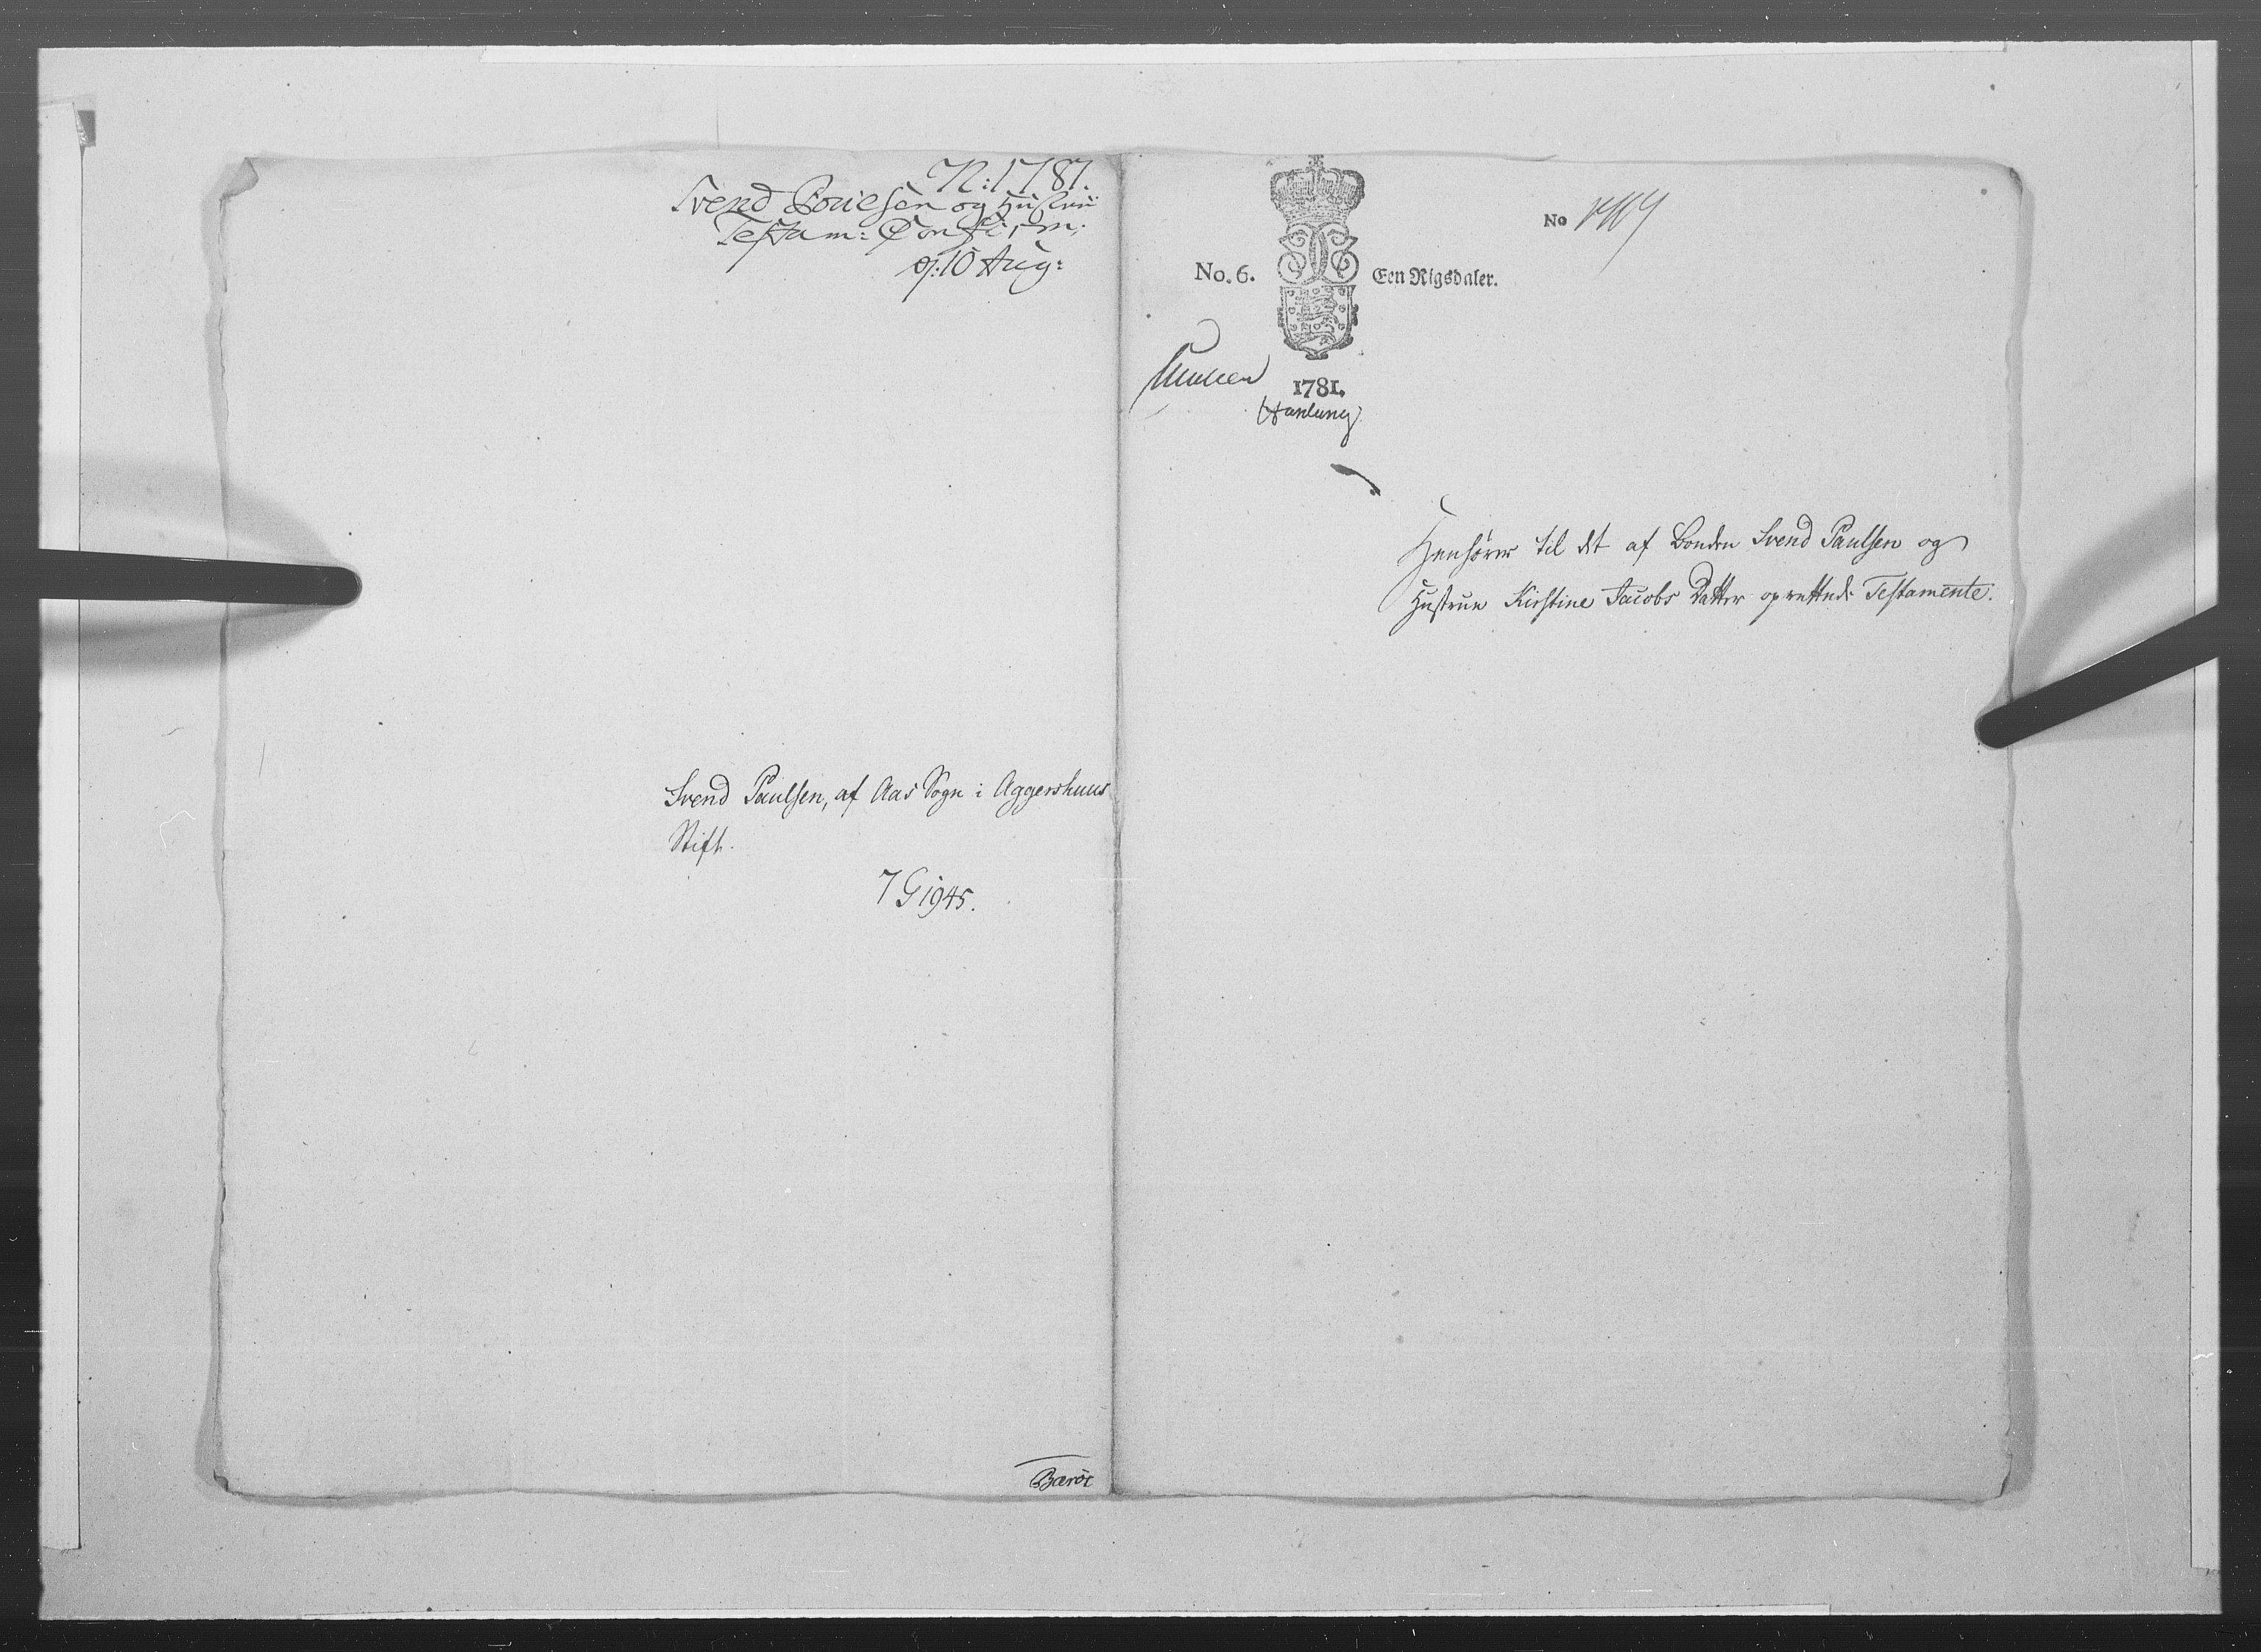 N: 1781.
Svend Poulsen og Hustrui
Testam: Confirm:
d: 10 Aug:
Svend Paulsen, af Aas Sogn i Aggershuus
Stift.
7 G 1945.
No
No. 6.
Een Rigsdaler.
1781.
Henhører til det af Bonden Svend Paulsen og
Hustrue Kirstine Jacobs Datter oprettede Testamente.